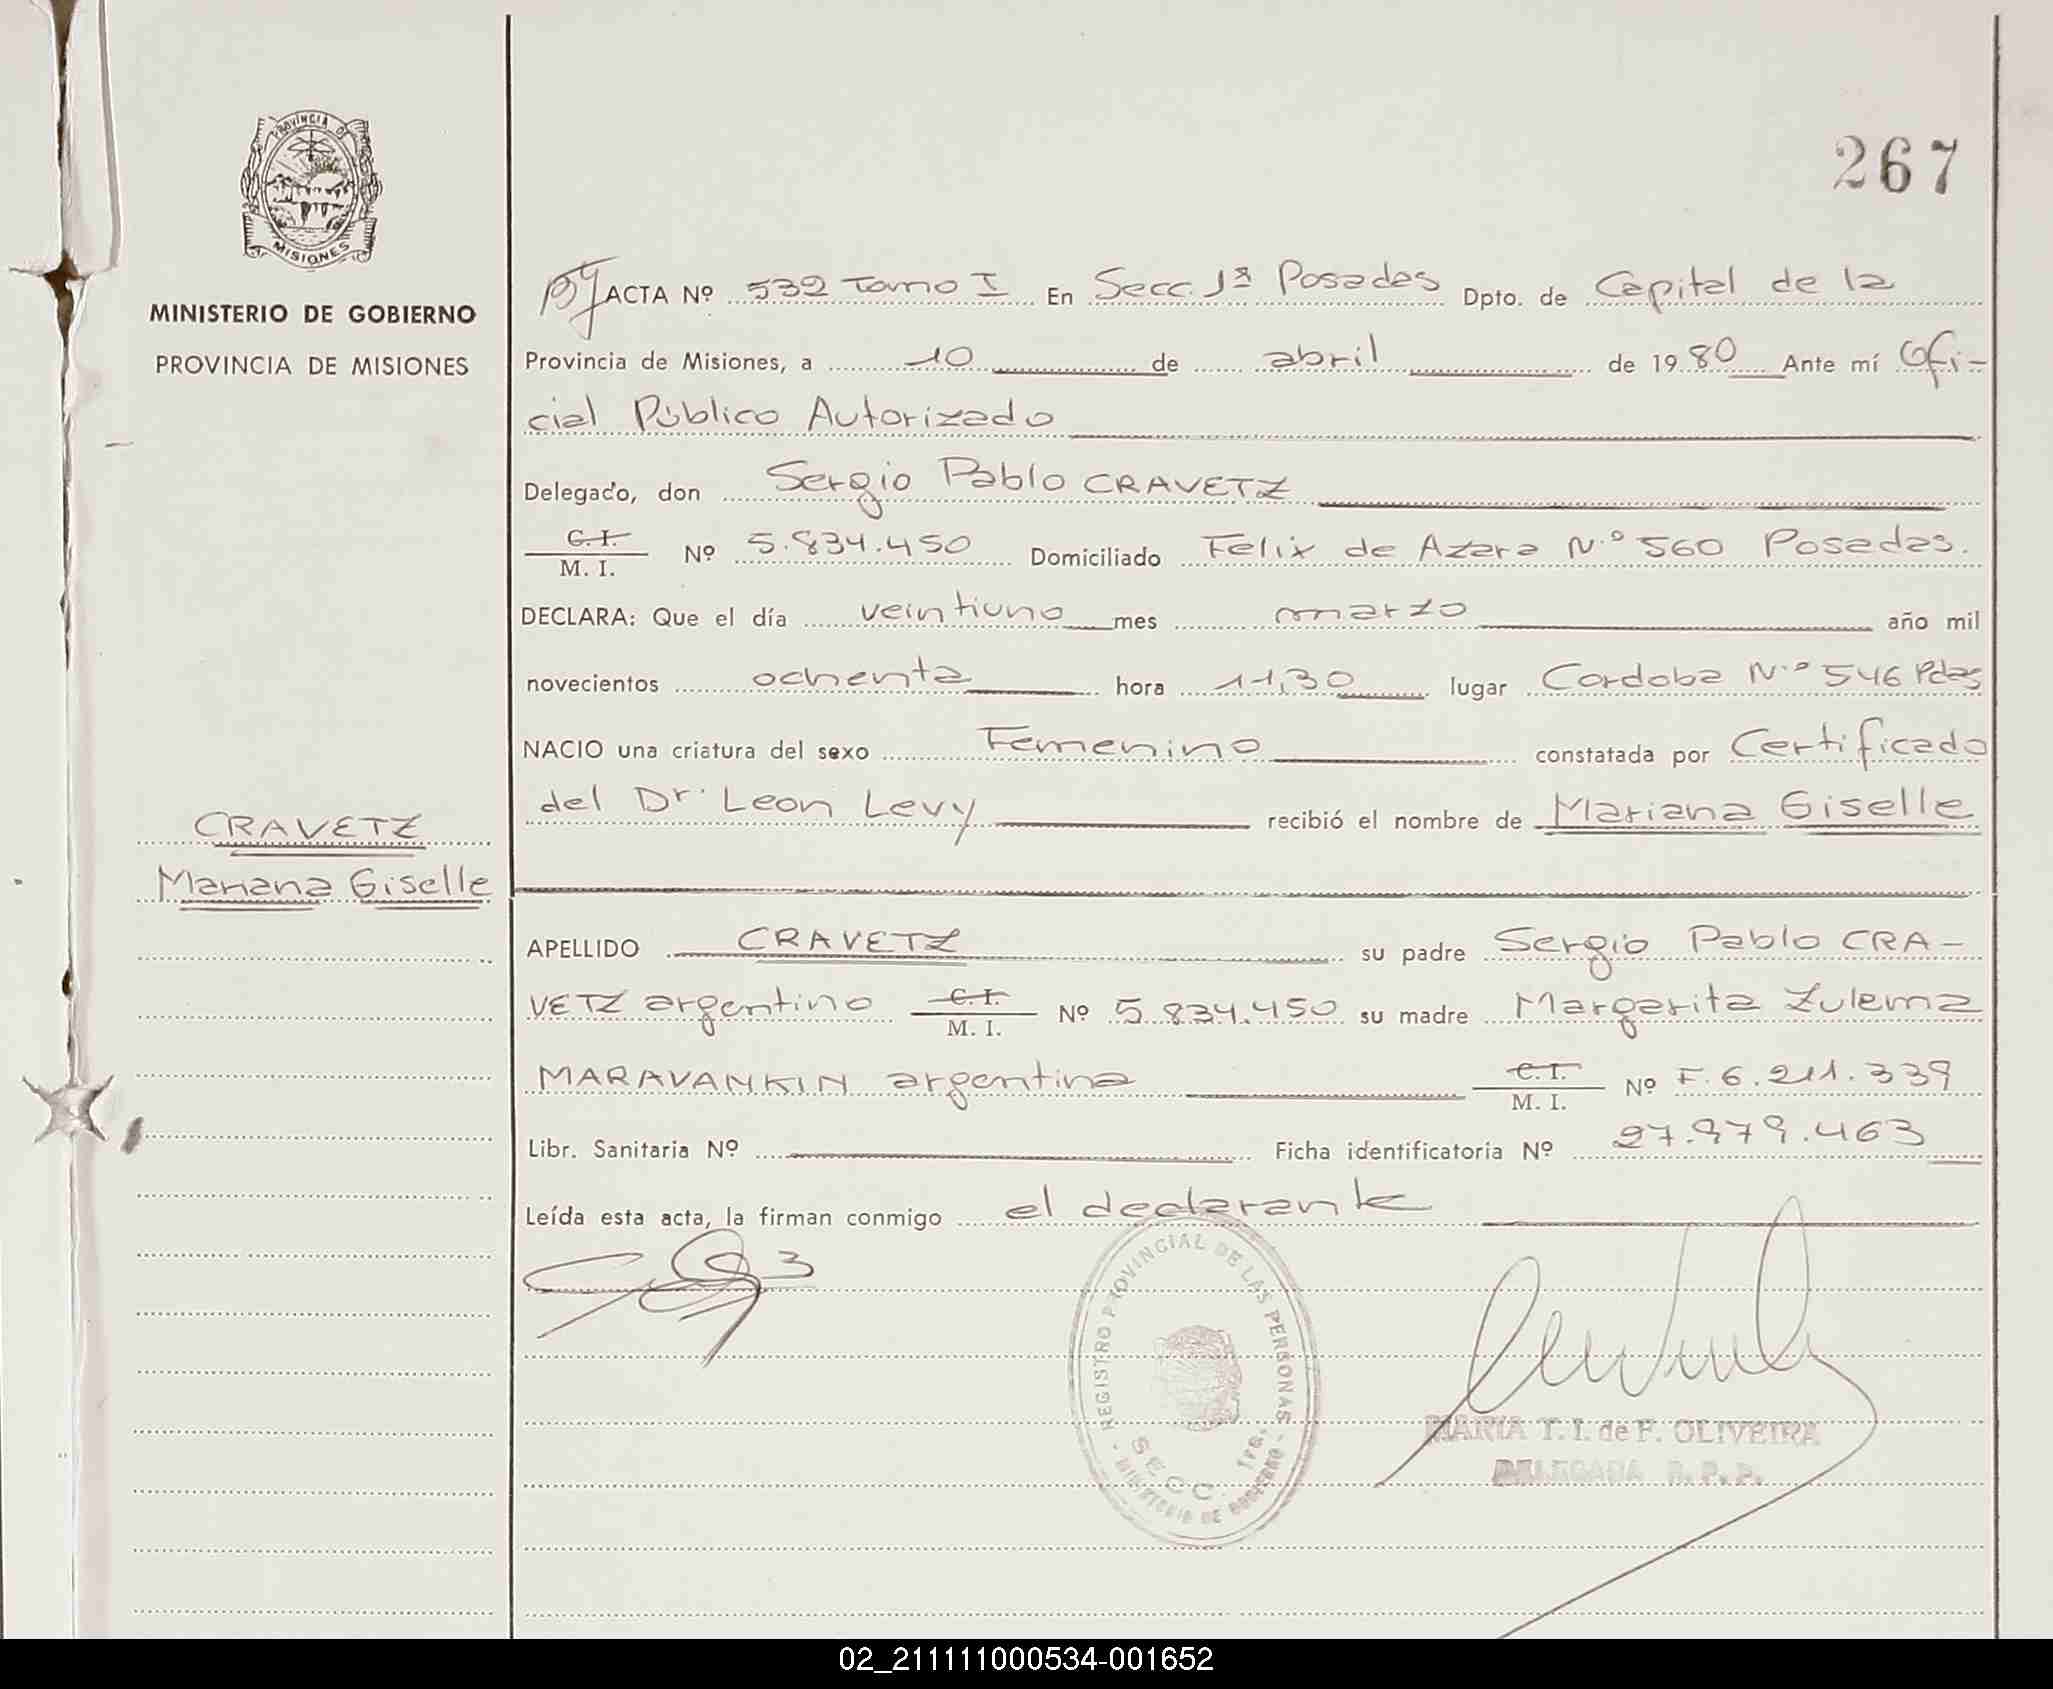 267
PROVINCIA DE
MISIONES
MINISTERIO DE GOBIERNO
PROVINCIA DE MISIONES
CRAVETZ
Mariana Giselle
ACTA Nº 532 Tomo I En Secc. 1ª Posadas Dpto. de Capital de la
Provincia de Misiones, a 10 de abril de 1980 Ante mí Ofi-
cial Público Autorizado
Delegado, don Sergio Pablo CRAVETZ
C. I.
M. I. Nº 5.834.450 Domiciliado Felix de Azara N.º 560 Posadas.
DECLARA: Que el día veintiuno mes marzo año mil
novecientos ochenta hora 11,30 lugar Cordoba N.º 546 Pdas
NACIO una criatura del sexo Femenino constatada por Certificado
del Dr. Leon Levy recibió el nombre de Mariana Giselle
APELLIDO CRAVETZ su padre Sergio Pablo CRA-
VETZ argentino C. I. M. I. Nº 5.834.450 su madre Margarita Zulema
MARAVANKIN argentina C. I. M. I. Nº F. 6.211.339
Libr. Sanitaria Nº Ficha identificatoria Nº 27.979.463
Leída esta acta, la firman conmigo el declarante
- REGISTRO PROVINCIAL DE LAS PERSONAS -
MINISTERIO DE GOBIERNO
SECC. 1ra.
MARIA T. I. de F. OLIVEIRA
DELEGADA R. P. P.
02_211111000534-001652